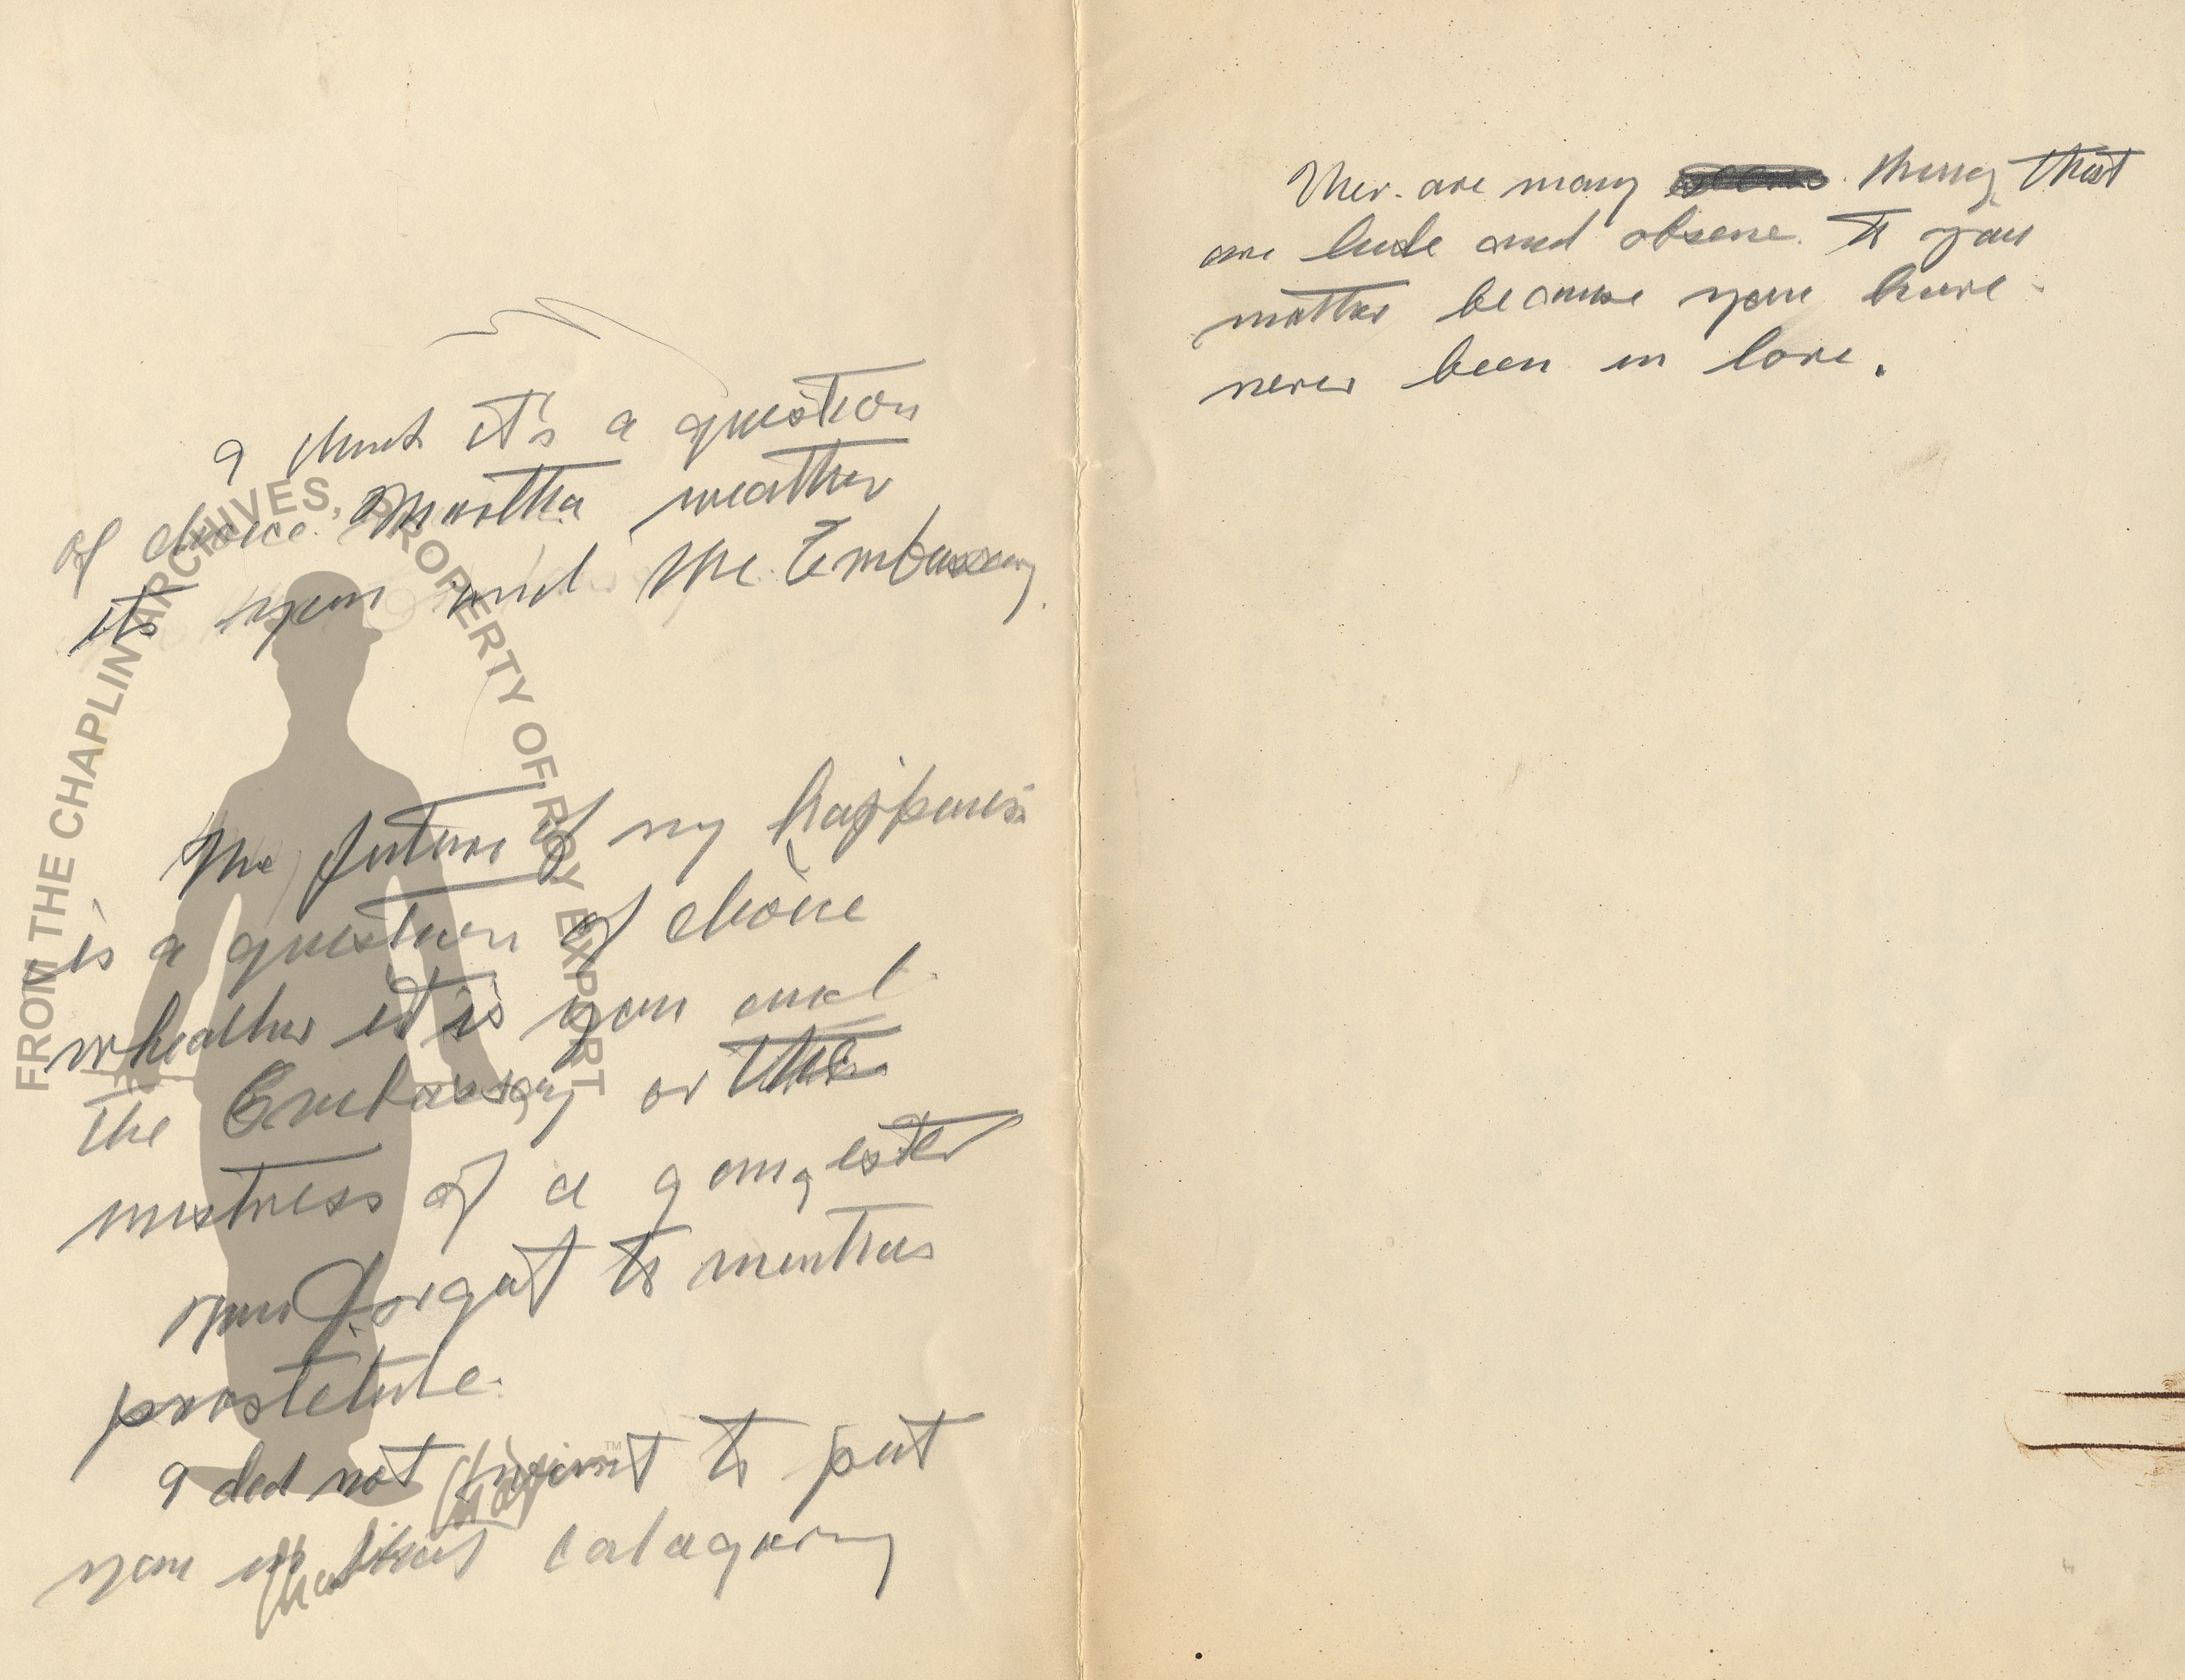 I think it's a question
of choice. Martha weather
its you and the Embassy.
The future of my happiness
is a question of choice
wheather it is you and
the Embassy or the
mistress of a gangester
you forgot to mention
prostetute.
I did not want to put
you in that catagory
Ther. are many things that
are lude and obsene. to you
matter because you have
never been in love.
FROM THE CHAPLIN ARCHIVES, PROPERTY OF ROY EXPORT
Charlie Chaplin
TM